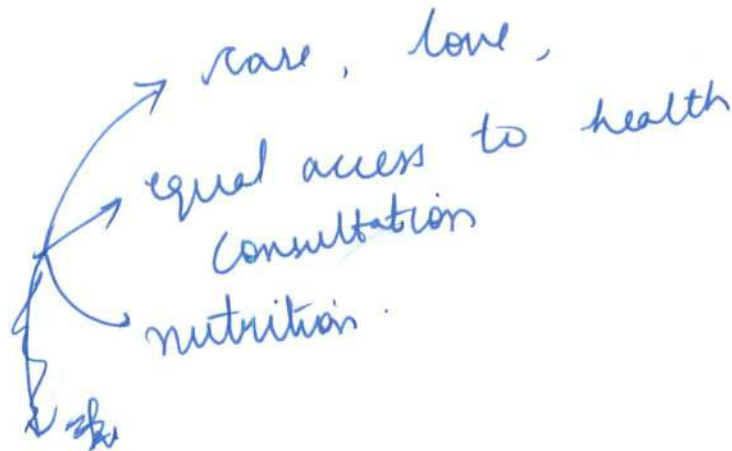 care, love,
equal access to health
consultation
nutrition.